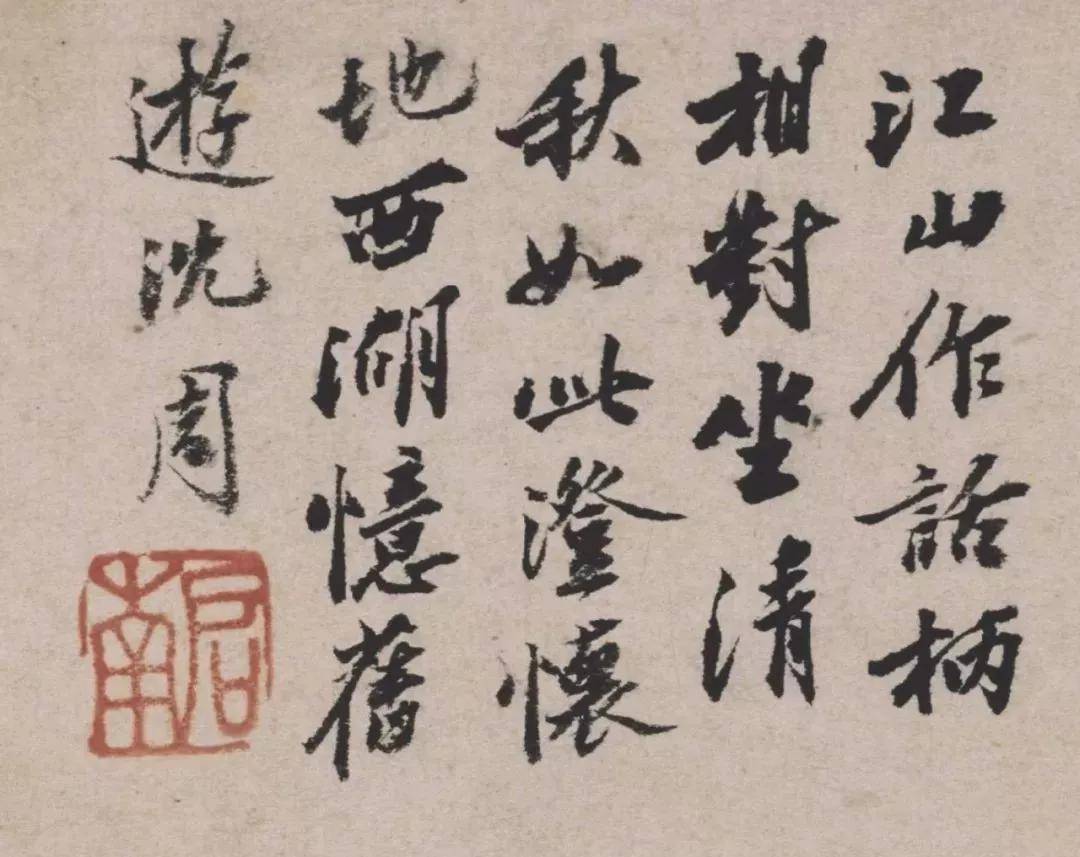 江山作話柄
相對坐清
秋如此澄懷
地西湖憶舊
遊沈周
啟南